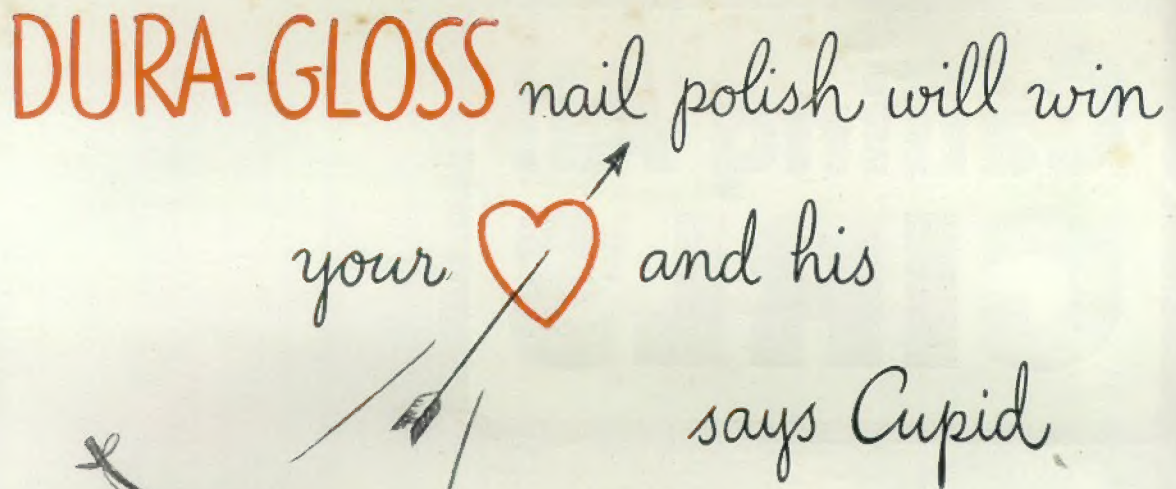 DURA-GLOSS nail polish will win
your and his
says Cupid